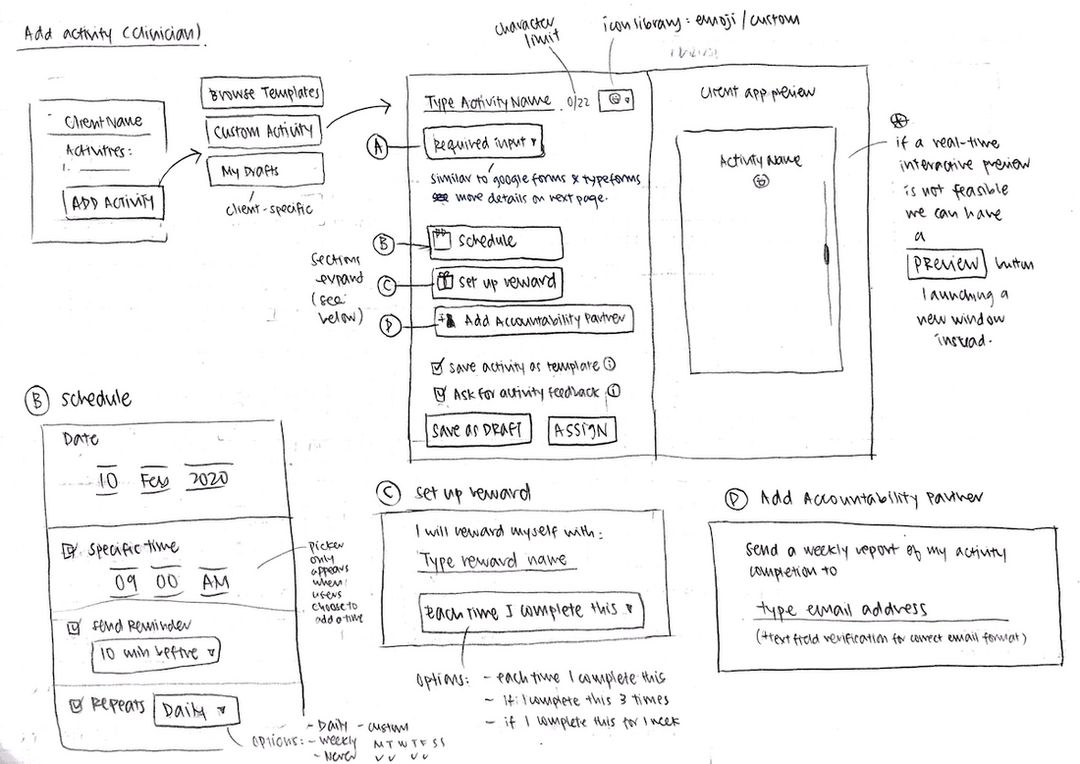 Add activity (clinician)
character
limit
icon library: emoji / custom
Client Name
Activities:
ADD ACTIVITY
Browse Templates
Custom Activity
My Drafts
client-specific
Type Activity Name 0/22
A
Required input
similar to google forms & typeforms
see more details on next page.
B
schedule
C
set up reward
D
Add Accountability Partner
sections
expand
(see
below)
Save activity as template i
Ask for activity feedback i
Save as DRAFT
ASSIGN
Client app preview
Activity Name
if a real-time
interactive preview
is not feasible
we can have
a
PREVIEW button
launching a
new window
instead.
B schedule
Date
10 Feb 2020
specific time
09 00 AM
picker
only
appears
when
users
choose to
add a time
Send Reminder
10 min before
Repeats Daily
options: - Daily - custom
- weekly M T W T F S S
- Never
C set up reward
I will reward myself with:
Type reward name
each time I complete this
options: - each time I complete this
- If I complete this 3 times
- if I complete this for 1 week
D Add Accountability Partner
Send a weekly report of my activity
completion to
type email address
(+text field verification for correct email format)